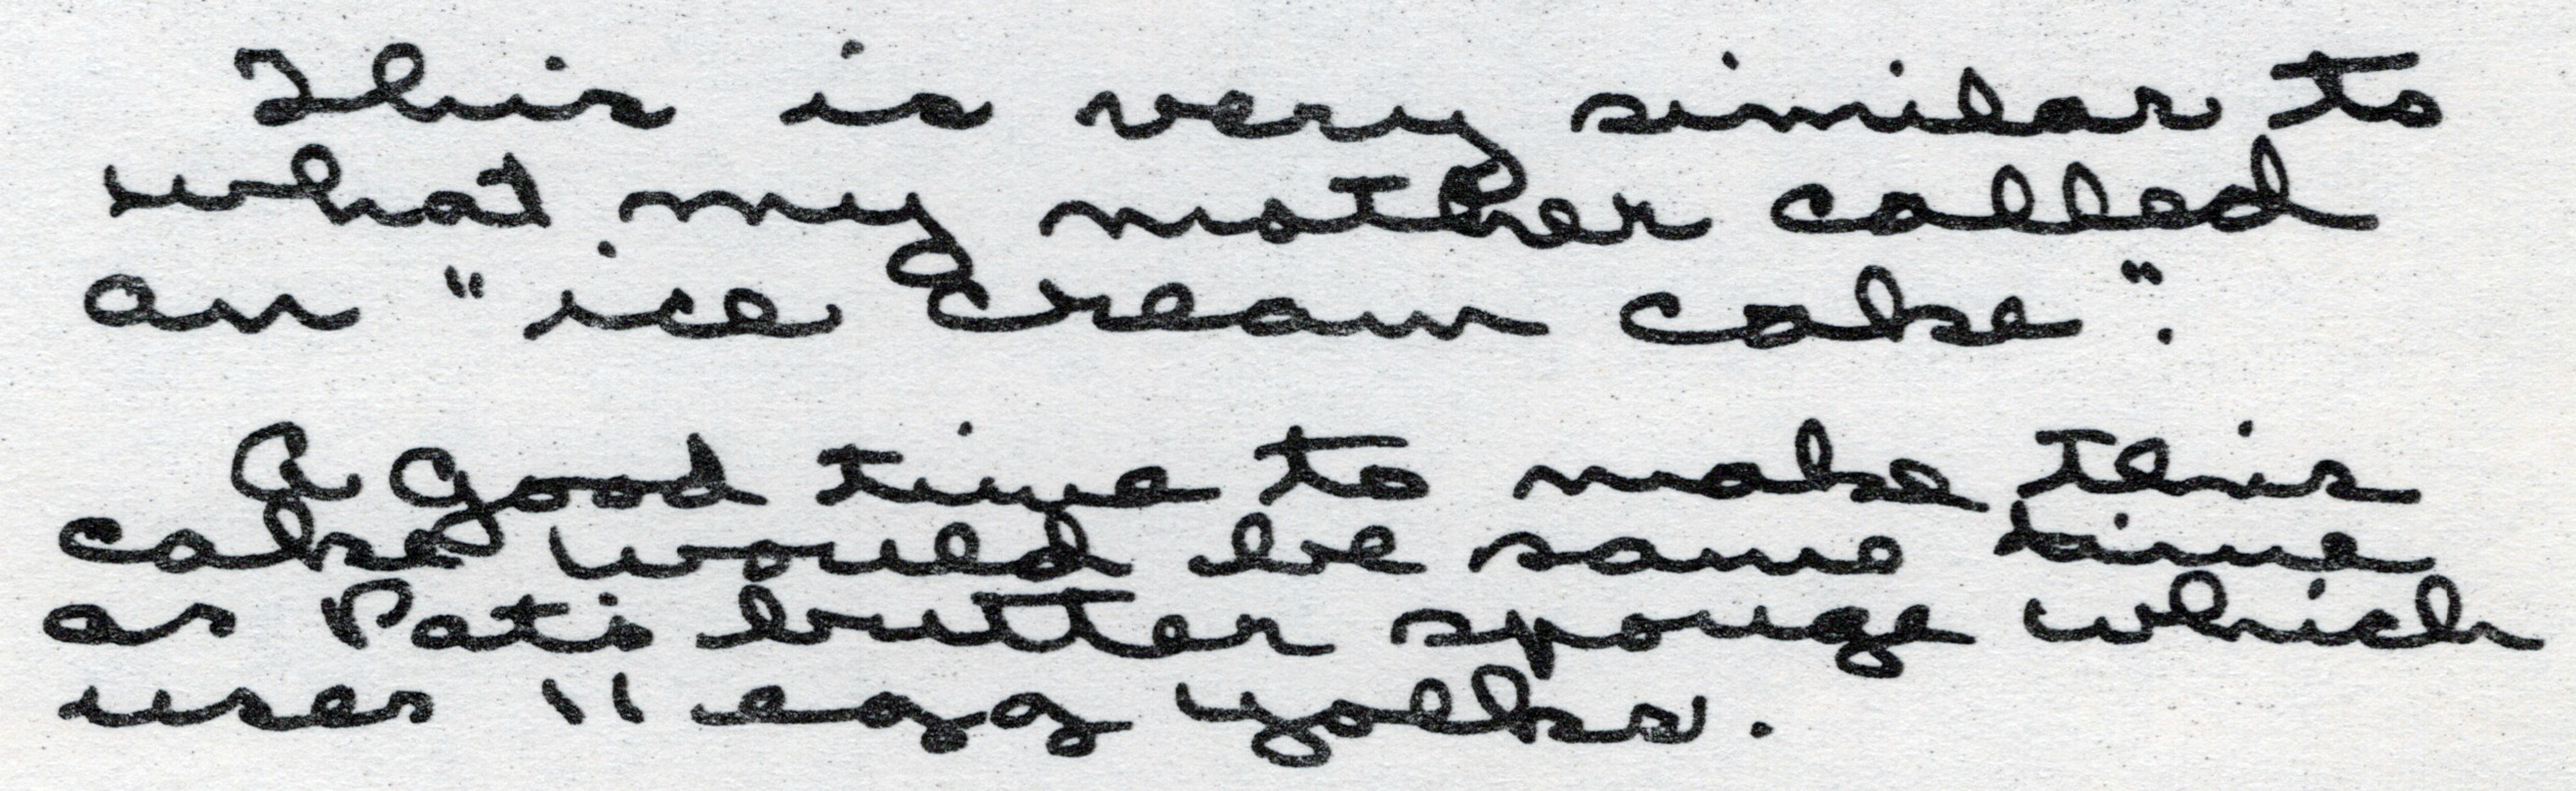 This is very similar to
what my mother called
an "ice cream cake".
A good time to make this
cake would be same time
as Pat's butter sponge which
uses 11 egg yolks.